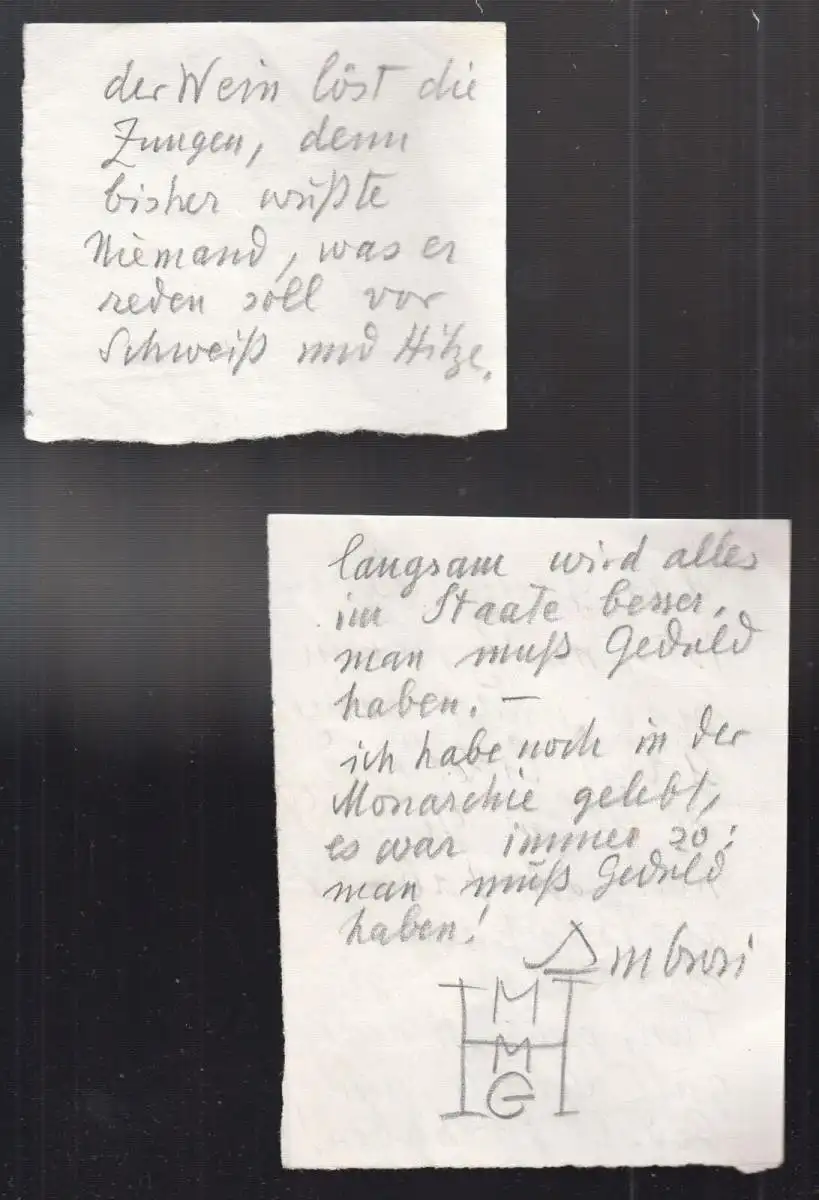 der Wein löst die
Zungen, denn
bisher wußte
Niemand, was er
reden soll vor
Schweiß und Hitze.
langsam wird alles
im Staate besser,
man muß Geduld
haben. —
ich habe noch in der
Monarchie gelebt,
es war immer so:
man muß Geduld
haben!
H M M G